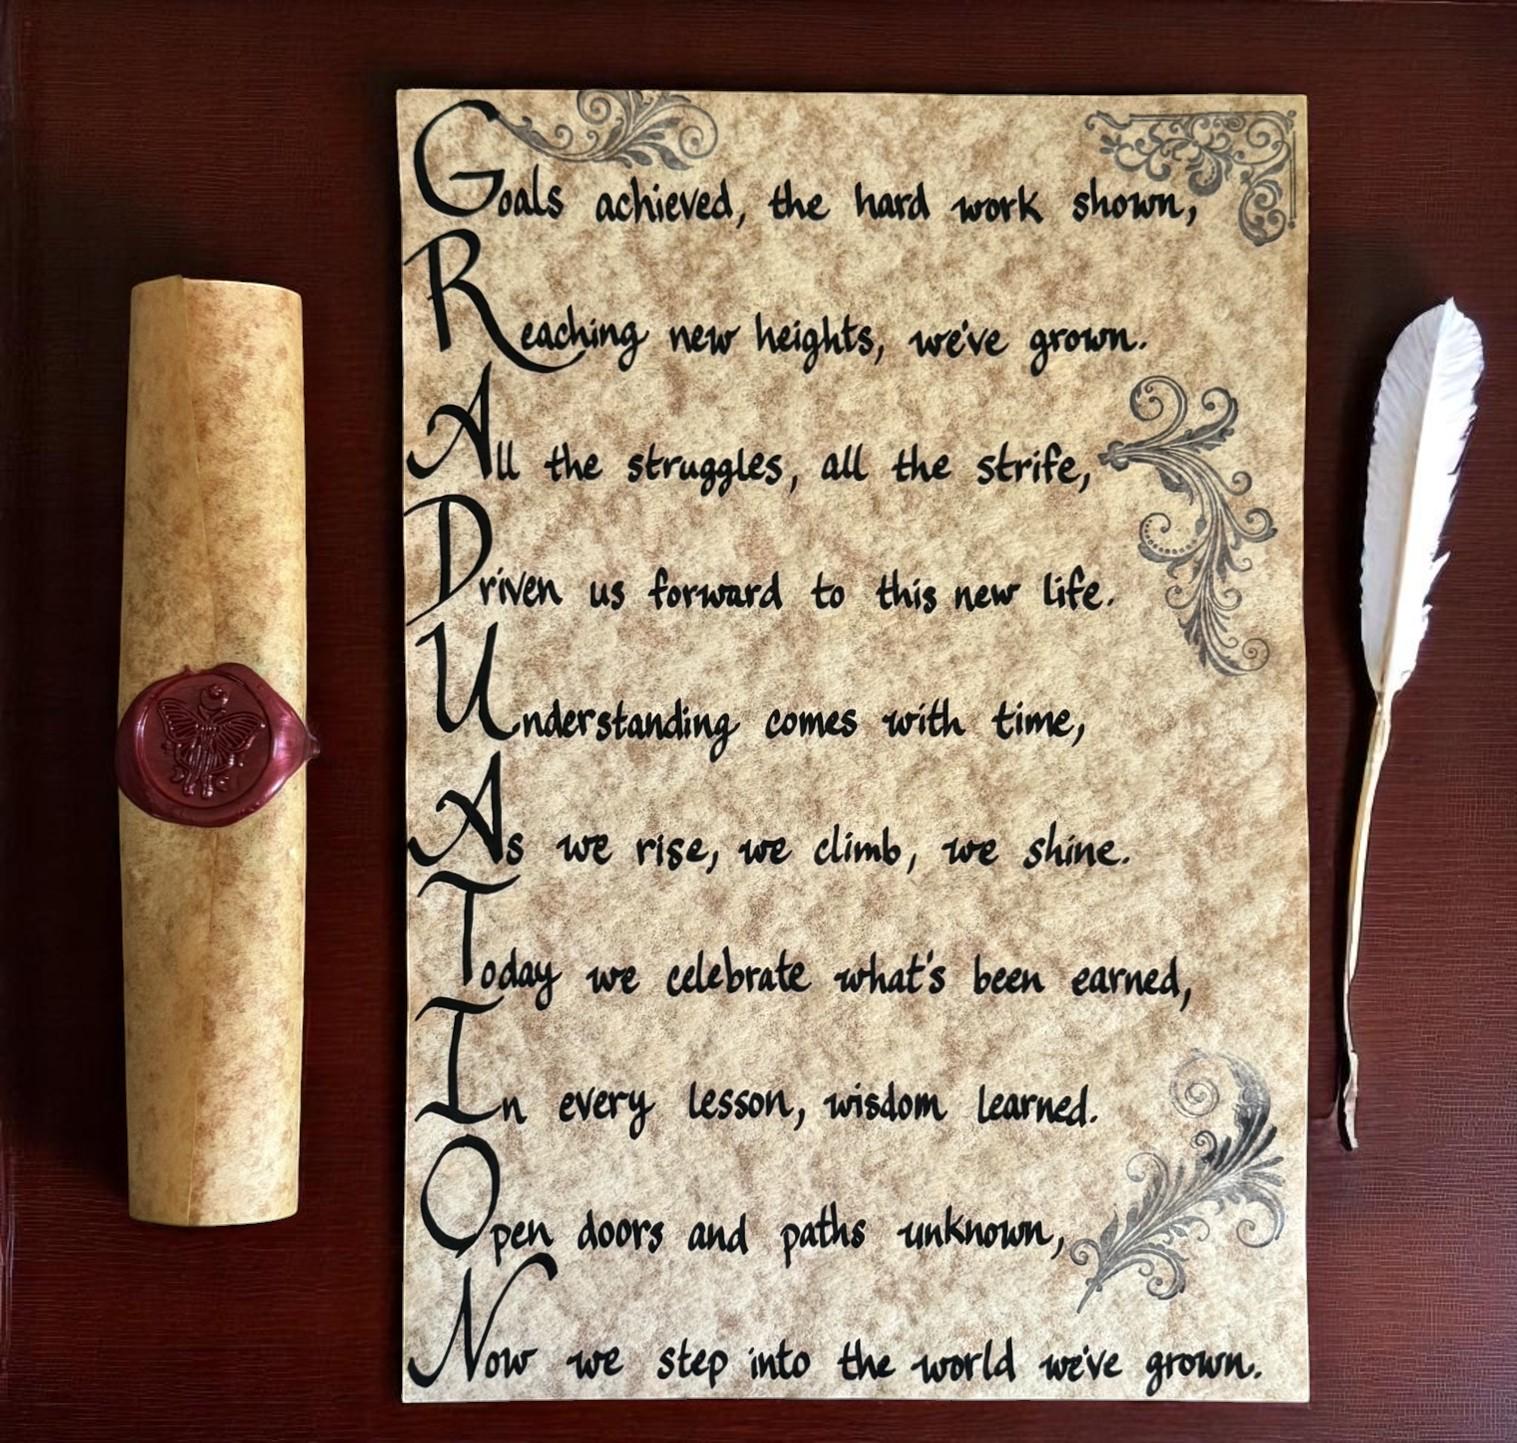 Goals achieved, the hard work shown,
Reaching new heights, we've grown.
All the struggles, all the strife,
Driven us forward to this new life.
Understanding comes with time,
As we rise, we climb, we shine.
Today we celebrate what's been earned,
In every lesson, wisdom learned.
Open doors and paths unknown,
Now we step into the world we've grown.